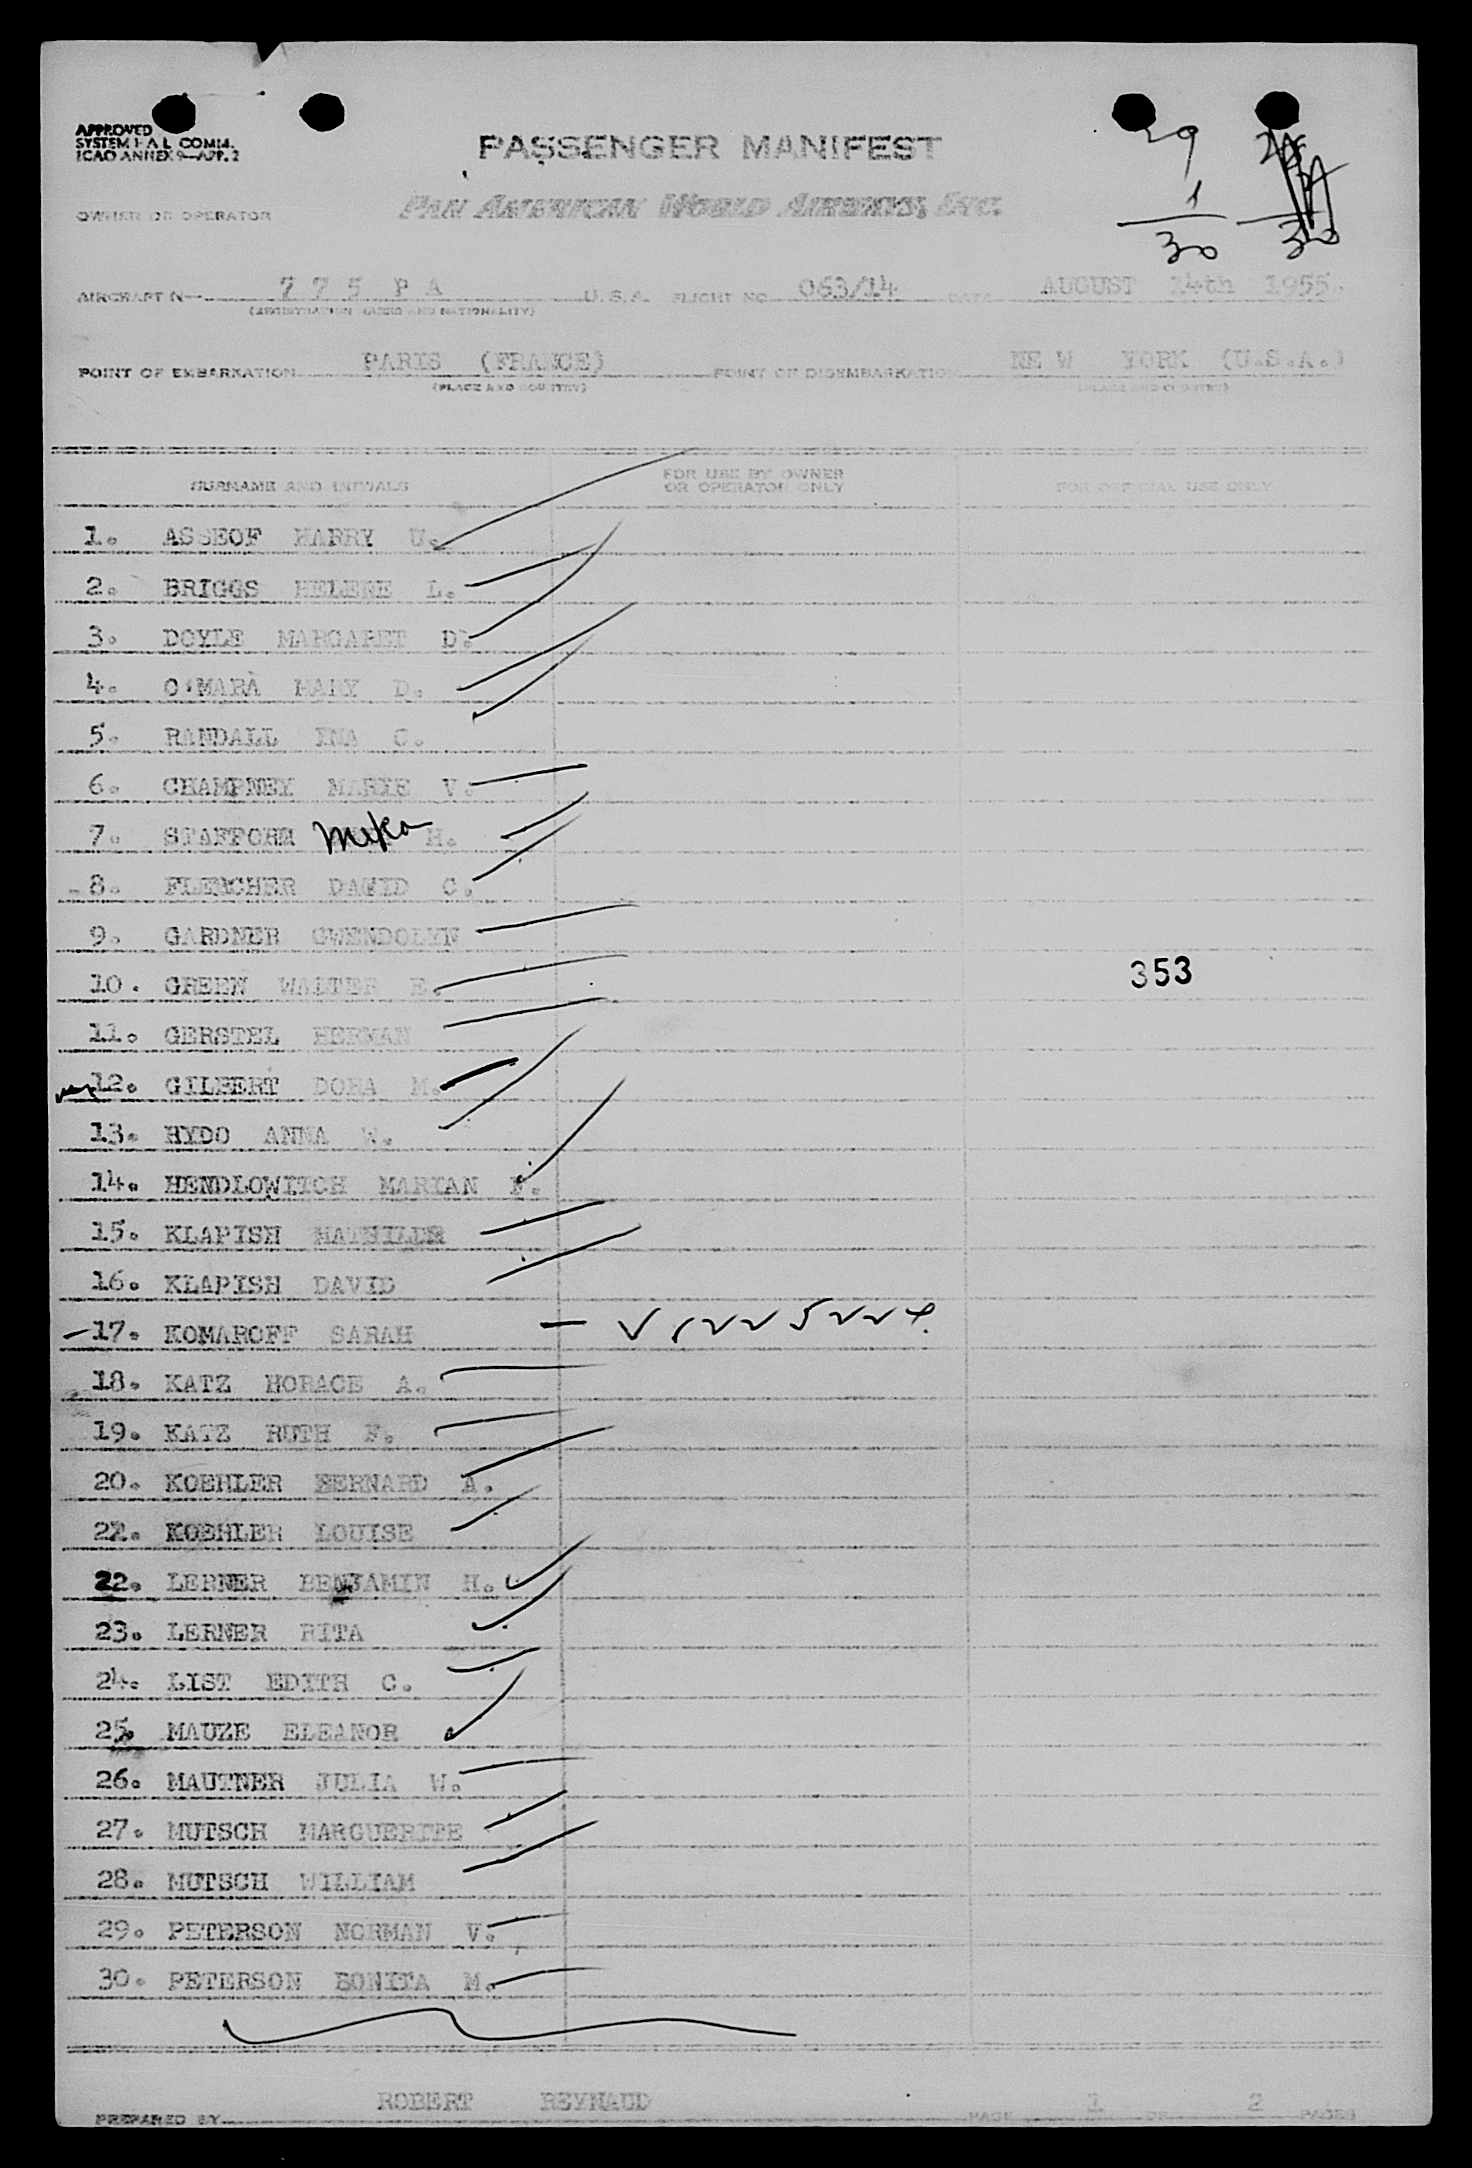 APPROVED
SYSTEM F A L COMM.
ICAO ANNEX 9-APP. 2
PASSENGER MANIFEST
29 28
1
30 30
OWNER OR OPERATOR PAN AMERICAN WORLD AIRWAYS, INC.
AIRCRAFT N— 7 7 5 P A U.S.A. FLIGHT NO 063/14 DATE AUGUST 14th 1955.
(REGISTRATION MARKS AND NATIONALITY)
POINT OF EMBARKATION PARIS (FRANCE) POINT OF DISEMBARKATION NE W YORK (U.S.A.)
(PLACE AND COUNTRY) (PLACE AND COUNTRY)
SURNAME AND INITIALS FOR USE BY OWNER OR OPERATOR ONLY FOR OFFICIAL USE ONLY
1. ASSEOF HARRY U.
2. BRIGGS HELENE L.
3. DOYLE MARGARET D.
4. O'MARA MARY D.
5. RANDALL INA C.
6. CHAMPNEY MARIE V.
7. H.
8. FLETCHER DAVID C.
9. GARDNER GWENDOLYN
10. GREEN WALTER E.
353
11. GERSTEL HERMAN
12. GILBERT DORA M.
13. HYDO ANNA W.
14. HENDLOWITCH MARIAN F.
15. KLAPISH MATHILDE
16. KLAPISH DAVID
17. KOMAROFF SARAH
18. KATZ HORACE A.
19. KATZ RUTH F.
20. KOEHLER BERNARD A.
22. KOEHLER LOUISE
22. LERNER BENJAMIN H.
23. LERNER RITA
24. LIST EDITH C.
25. MAUZE ELEANOR
26. MAUTNER JULIA W.
27. MUTSCH MARGUERITE
28. MUTSCH WILLIAM
29. PETERSON NORMAN V.
30. PETERSON BONITA M.
PREPARED BY ROBERT REYNAUD PAGE 1 OF 2 PAGES